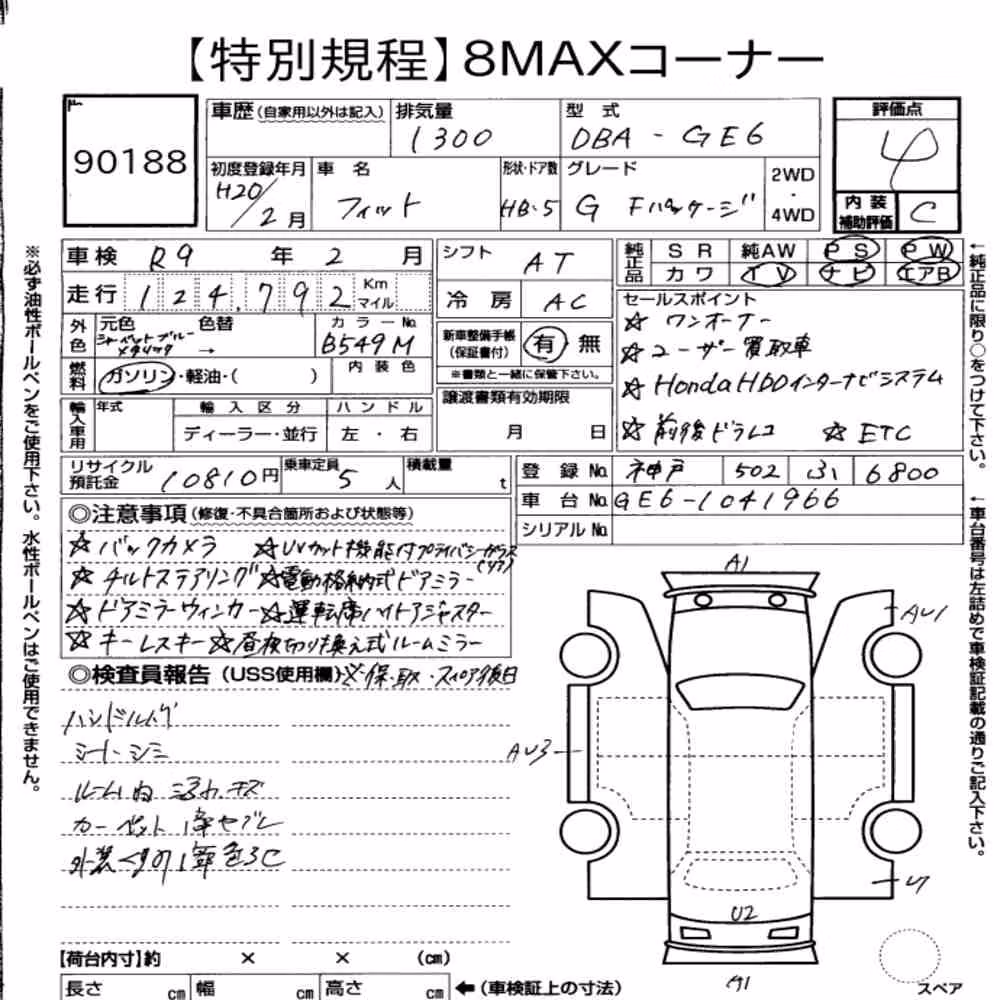 【特別規程】8MAXコーナー
90188
車歴(自家用以外は記入) 排気量 型式 評価点
1300 DBA-GE6 4
初度登録年月 車名 形状・ドア数 グレード 2WD・4WD
H20/2月 フィット HB・5 G Fパッケージ
内装補助評価 C
車検 R9年 2月
走行 124,792 Km マイル
シフト AT
冷房 AC
純正品 SR 純AW PS PW
カワ TV ナビ エアB
外色 元色 色替 カラーNo.
シャーベットブルーメタリック → B549M
燃料 ガソリン・軽油・( ) 内装色
新車整備手帳(保証書付) 有 無
※書類と一緒に保管下さい。
輸入車用 年式 輸入区分 ハンドル
ディーラー・並行 左・右
譲渡書類有効期限
月 日
セールスポイント
☆ワンオーナー
☆ユーザー買取車
☆HondaHDDインターナビシステム
☆前後ドラレコ ☆ETC
リサイクル預託金 10810円 乗車定員 5人 積載量 t
登録No. 神戸 502 ふ 6800
車台No. GE6-1041966
シリアルNo.
◎注意事項(修復・不具合箇所および状態等)
☆バックカメラ ☆UVカット機能付プライバシーガラス(リア)
☆チルトステアリング ☆電動格納式ドアミラー
☆ドアミラーウィンカー ☆運転席ハイトアジャスター
☆キーレスキー ☆昼夜切り換え式ルームミラー
◎検査員報告(USS使用欄)※保・取・スペア後日
ハンドルスレ
シートシミ
ルーム内 キズ
カーペット
外装
A1
AU1
AU3
U2
A1
スペア
【荷台内寸】約 × × (cm)
長さ cm 幅 cm 高さ cm ←(車検証上の寸法)
※必ず油性ボールペンをご使用下さい。水性ボールペンはご使用できません。
←純正品に限り○をつけて下さい。
←車台番号は左詰めで車検証記載の通りご記入下さい。